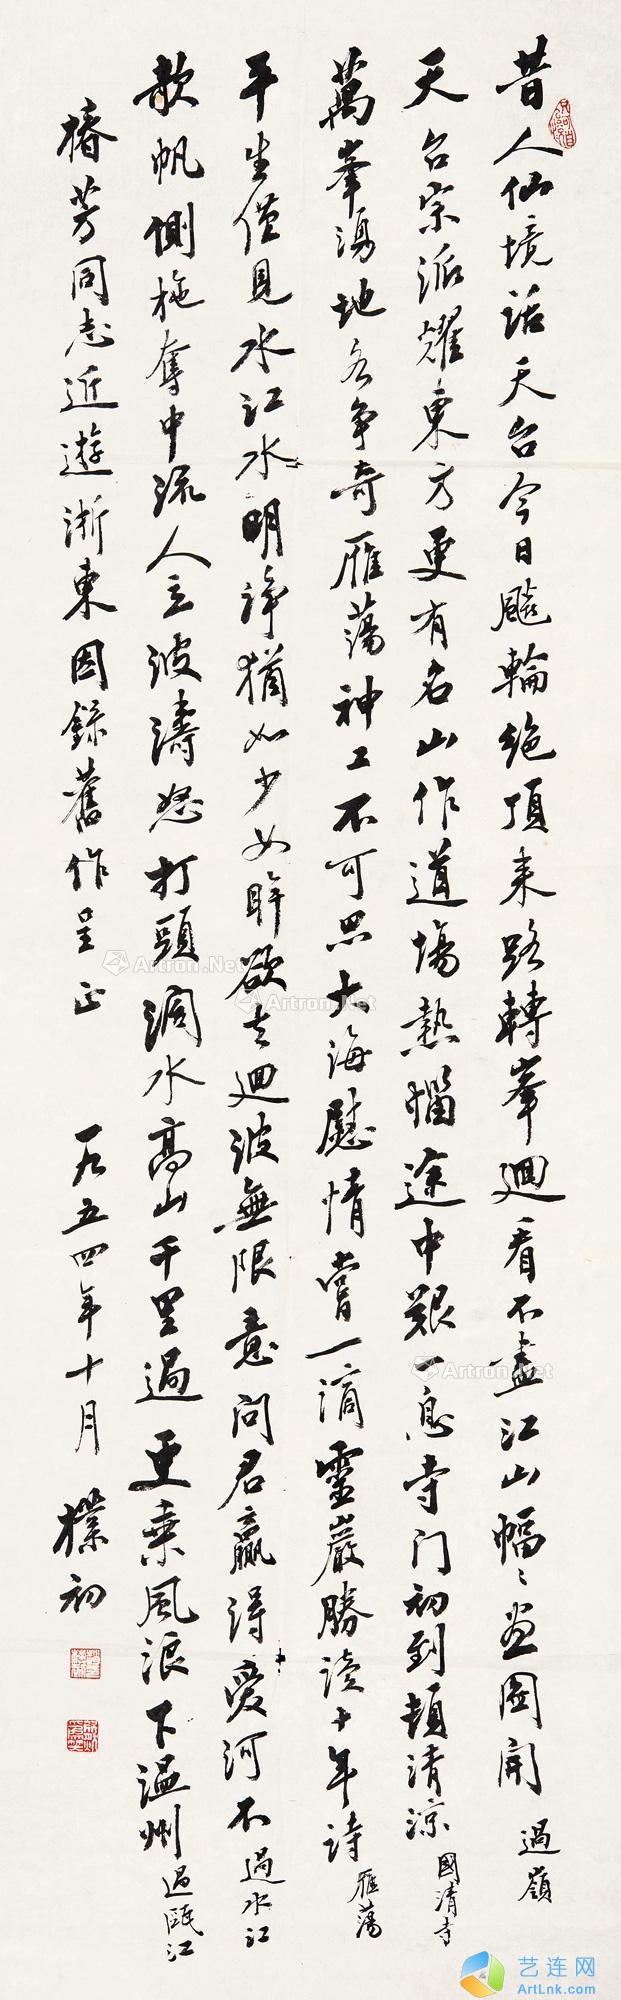 昔人仙境話天台今日飈輪絶頂来路轉峯迴看不盡江山幅〻畫圖開 過嶺
天台宗派耀東方更有名山作道場熱惱途中艱一息寺门初到頓清涼 國清寺
萬峯湧地各争奇雁蕩神工不可思大海慰情嘗一滴靈巖勝读十年詩 雁蕩
平生僅見水江水明淨猶如少女眸欲去迴波無限意问君贏得愛河不 過水江
欹帆側柂奪中流人立波濤怒打頭澗水高山千里過更乘風浪下温州 過甌江
椿芳同志近遊浙東因錄舊作呈正 一九五四年十月 樸初
Artron.Net
Artron.Net
Artron.Net
艺连网
ArtLnk.com